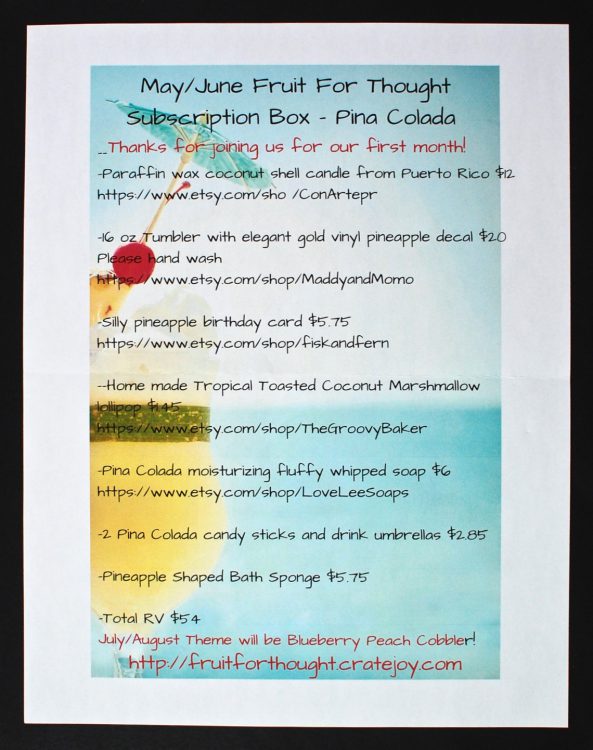 May/June Fruit For Thought
Subscription Box - Pina Colada
_Thanks for joining us for our first month!
-Paraffin wax coconut shell candle from Puerto Rico $12
https://www.etsy.com/sho /ConArtepr
-16 oz Tumbler with elegant gold vinyl pineapple decal $20
Please hand wash
https://www.etsy.com/shop/MaddyandMomo
-Silly pineapple birthday card $5.75
https://www.etsy.com/shop/fiskandfern
--Home made Tropical Toasted Coconut Marshmallow
lollipop $1.45
https://www.etsy.com/shop/TheGroovyBaker
-Pina Colada moisturizing fluffy whipped soap $6
https://www.etsy.com/shop/LoveLeeSoaps
-2 Pina Colada candy sticks and drink umbrellas $2.85
-Pineapple Shaped Bath Sponge $5.75
-Total RV $54
July/August Theme will be Blueberry Peach Cobbler!
http://fruitforthought.cratejoy.com